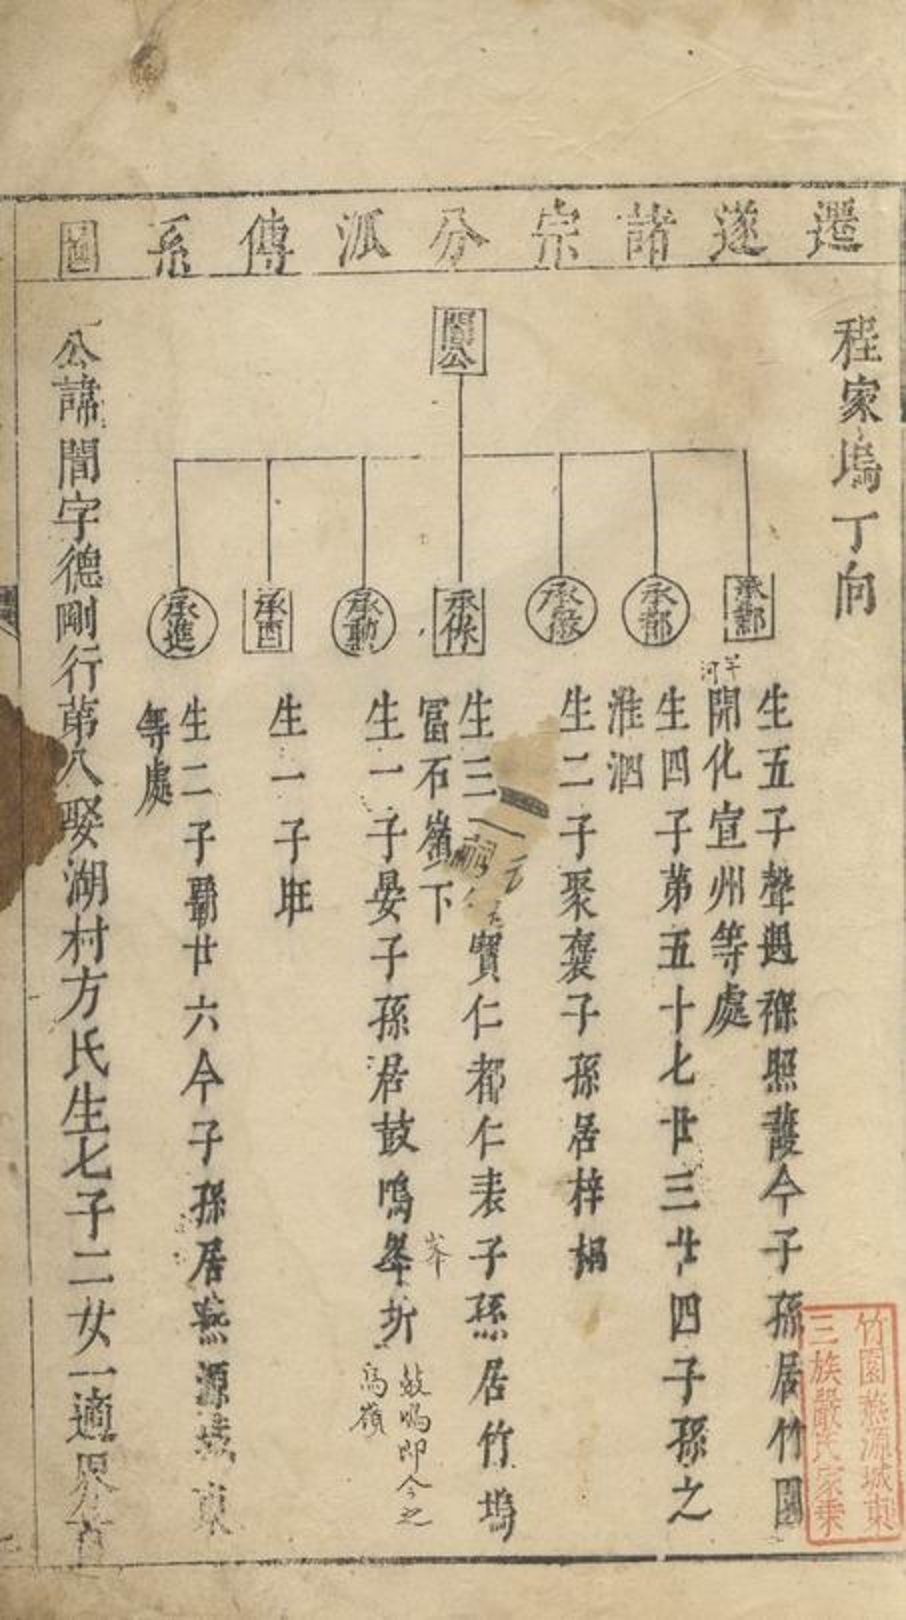 遷遂諸宗分派傳系圖
程家塢丁向
閭公
承鄯
承都
承徽
承脩
承勳
承酉
承進
生五子聲遇 照護今子孫居竹園
洋河
開化宣州等處
生四子第五十七廿三廿四子孫之
淮泗
生二子聚襄子孫居梓
生三 寳仁都仁表子孫居竹塢
冨石嶺下
生一子晏子孫居鼓鳴峯 
峯
鼓鳴即今之
馮嶺
生一子
生二子 廿六今子孫居燕源城東
等處
公諱閭字德剛行第八娶湖村方氏生七子二女一適界首
竹園燕源城東
三族嚴氏家乗